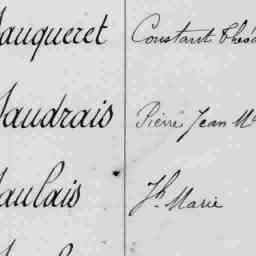 auqueret Constant Théo
audrais Pierre Jean M
aulais Jh Marie